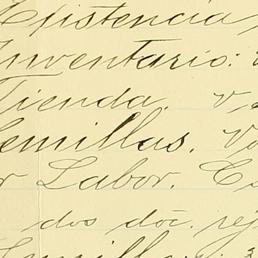 Existencia
Inventario:
Tienda. v
Semillas. Vo
r Labor. C
dos doc. rej
Semillas: